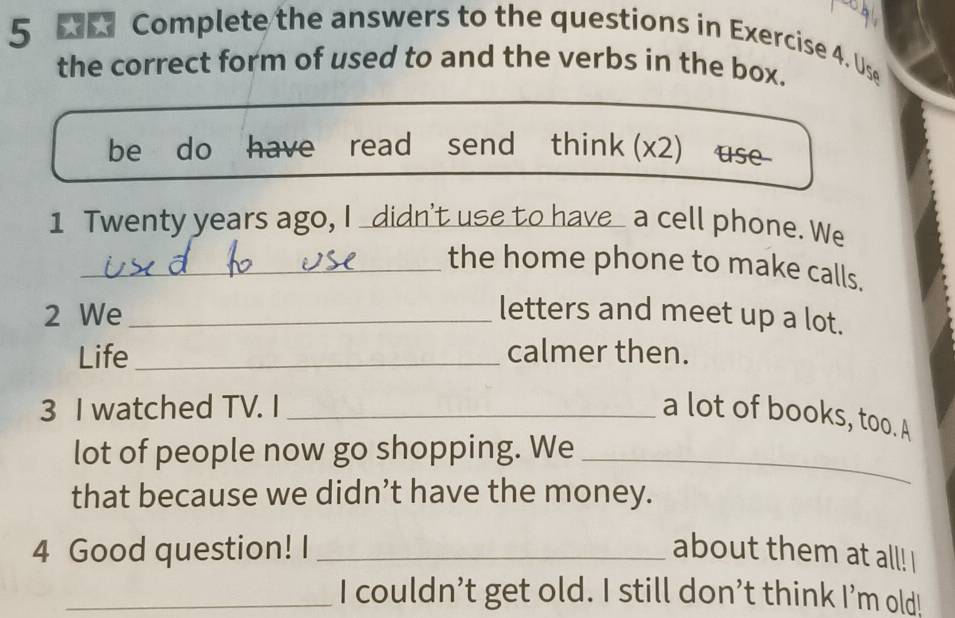 5 Complete the answers to the questions in Exercise 4. Use
the correct form of used to and the verbs in the box.
be do have read send think (x2) use
1 Twenty years ago, I didn't use to have a cell phone. We
used to use the home phone to make calls.
2 We ______ letters and meet up a lot.
Life ______ calmer then.
3 I watched TV. I ______ a lot of books, too. A
lot of people now go shopping. We ______
that because we didn't have the money.
4 Good question! I ______ about them at all! I
______ I couldn't get old. I still don't think I'm old!